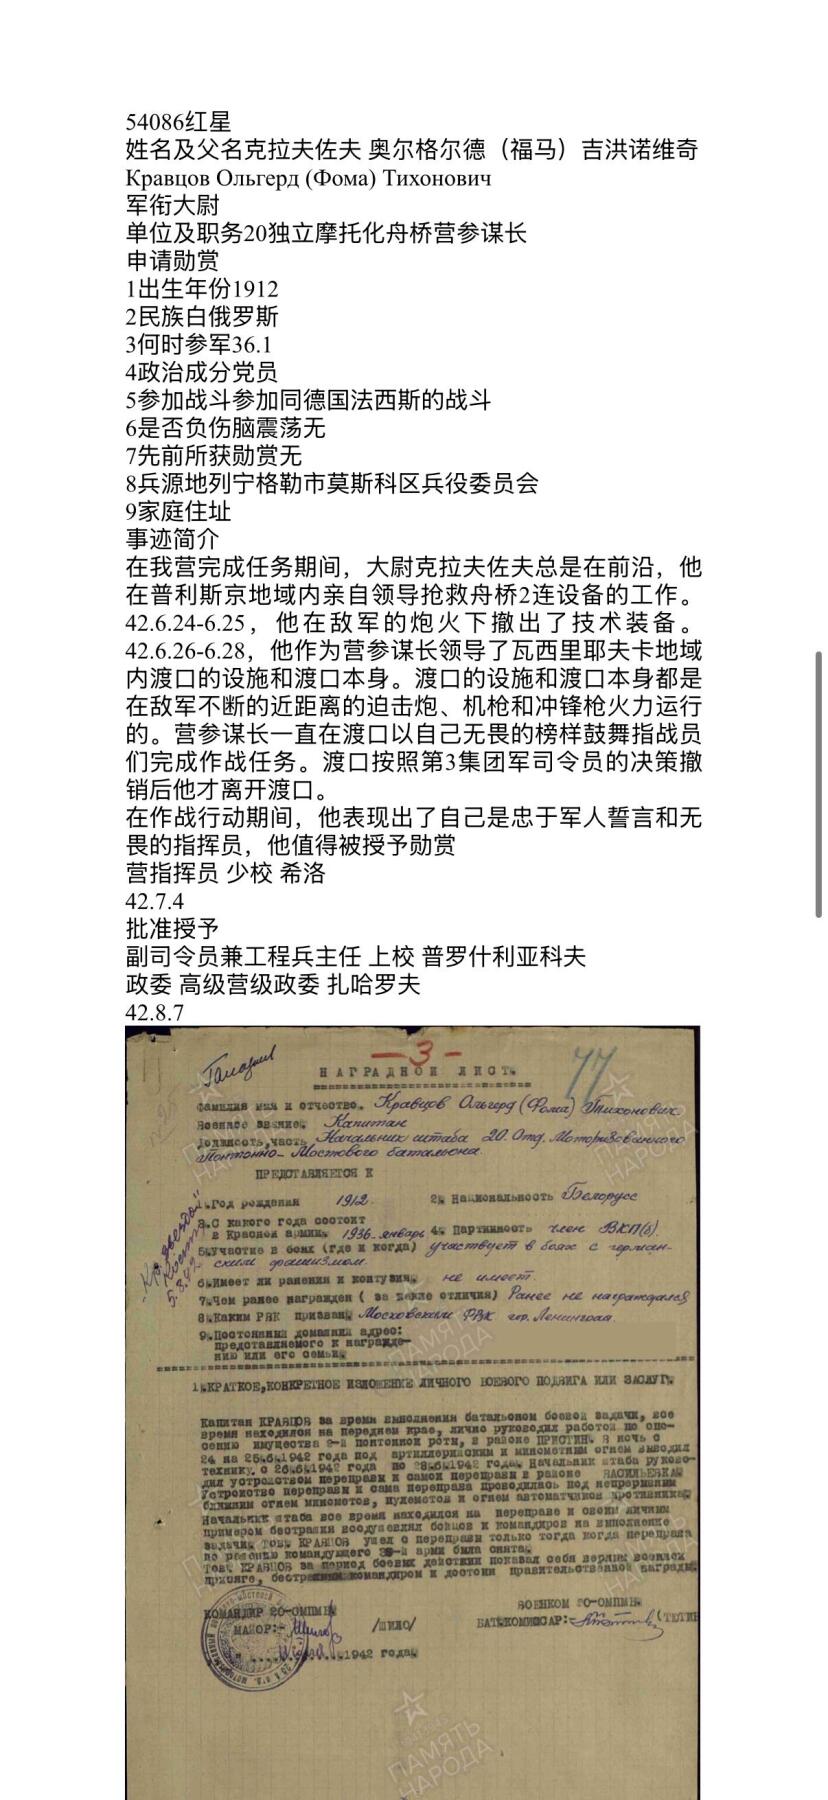 54086红星
姓名及父名克拉夫佐夫 奥尔格尔德（福马）吉洪诺维奇
Кравцов Ольгерд (Фома) Тихонович
军衔大尉
单位及职务20独立摩托化舟桥营参谋长
申请勋赏
1出生年份1912
2民族白俄罗斯
3何时参军36.1
4政治成分党员
5参加战斗参加同德国法西斯的战斗
6是否负伤脑震荡无
7先前所获勋赏无
8兵源地列宁格勒市莫斯科区兵役委员会
9家庭住址
事迹简介
在我营完成任务期间，大尉克拉夫佐夫总是在前沿，他
在普利斯京地域内亲自领导抢救舟桥2连设备的工作。
42.6.24-6.25，他在敌军的炮火下撤出了技术装备。
42.6.26-6.28，他作为营参谋长领导了瓦西里耶夫卡地域
内渡口的设施和渡口本身。渡口的设施和渡口本身都是
在敌军不断的近距离的迫击炮、机枪和冲锋枪火力运行
的。营参谋长一直在渡口以自己无畏的榜样鼓舞指战员
们完成作战任务。渡口按照第3集团军司令员的决策撤
销后他才离开渡口。
在作战行动期间，他表现出了自己是忠于军人誓言和无
畏的指挥员，他值得被授予勋赏
营指挥员 少校 希洛
42.7.4
批准授予
副司令员兼工程兵主任 上校 普罗什利亚科夫
政委 高级营级政委 扎哈罗夫
42.8.7
-3-
77
НАГРАДНОЙ ЛИСТ.
Фамилия имя и отчество. Кравцов Ольгерд (Фома) Тихонович
Военное звание. Капитан
Должность, часть Начальник штаба 20 Отд. Моторизованного
Понтонно-Мостового батальона.
ПРЕДСТАВЛЯЕТСЯ К
1. Год рождения 1912 2. Национальность Белорусс
3. С какого года состоит
в Красной армии. 1936-январь 4. Партийность член ВКП(б).
5. Участие в боях (где и когда) участвует в боях с герман-
ским фашизмом.
6. Имеет ли ранения и контузия. не имеет.
7. Чем ранее награжден ( за какие отличия) Ранее не награждался
8. Каким РВК призван. Московским РВК гор. Ленинграда.
9. Постоянный домашний адрес:
представляемого к награжде-
нию или его семьи.
"Кр. звезда"
5.8.42
1. КРАТКОЕ, КОНКРЕТНОЕ ИЗЛОЖЕНИЕ ЛИЧНОГО БОЕВОГО ПОДВИГА ИЛИ ЗАСЛУГ.
Капитан КРАВЦОВ за время выполнения батальоном боевой задачи, все
время находился на переднем крае, лично руководил работой по спа-
сению имущества 2-й понтонной роты, в районе ПРИСТИН. В ночь с
24 на 25.6.1942 года под артиллерийским и минометным огнем выводил
технику. с 26.6.1942 года по 28.6.1942 года. Начальник штаба руково-
дил устройством переправы и самой переправы в районе ВАСИЛЬЕВКА.
Устройство переправы и сама переправа проводилась под непрерывным
ближним огнем минометов, пулеметов и огнем автоматчиков противника.
Начальник штаба все время находился на переправе и своим личным
примером бестрашия воодушевлял бойцов и командиров на выполнение
задачи. Тов. КРАВЦОВ ушел с переправы только тогда когда переправа
по решению командующего 3-й армии была снята.
Тов. КРАВЦОВ за период боевых действий показал себя верным военной
присяге, бестрашным командиром и достоин правительственной награды.
КОМАНДИР 20-ОМПМБ.
МАЙОР:- /ШИЛО/
1942 года.
ВОЕНКОМ 20-ОМПМБ.
БАТ.КОМИССАР:-
ПАМЯТЬ
НАРОДА